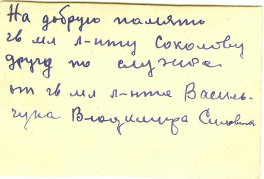 На добрую память
гв мл л-нту Соколову
другу по службе
от гв мл л-нта Василь-
чука Владимира